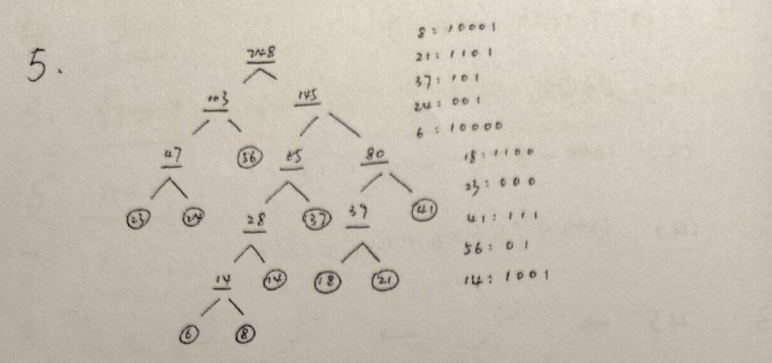 5.
248
103 145
47 56 65 80
23 24 28 37 39 41
14 14 18 21
6 8
8:10001
21:1101
37:101
24:001
6:10000
18:1100
23:000
41:111
56:01
14:1001